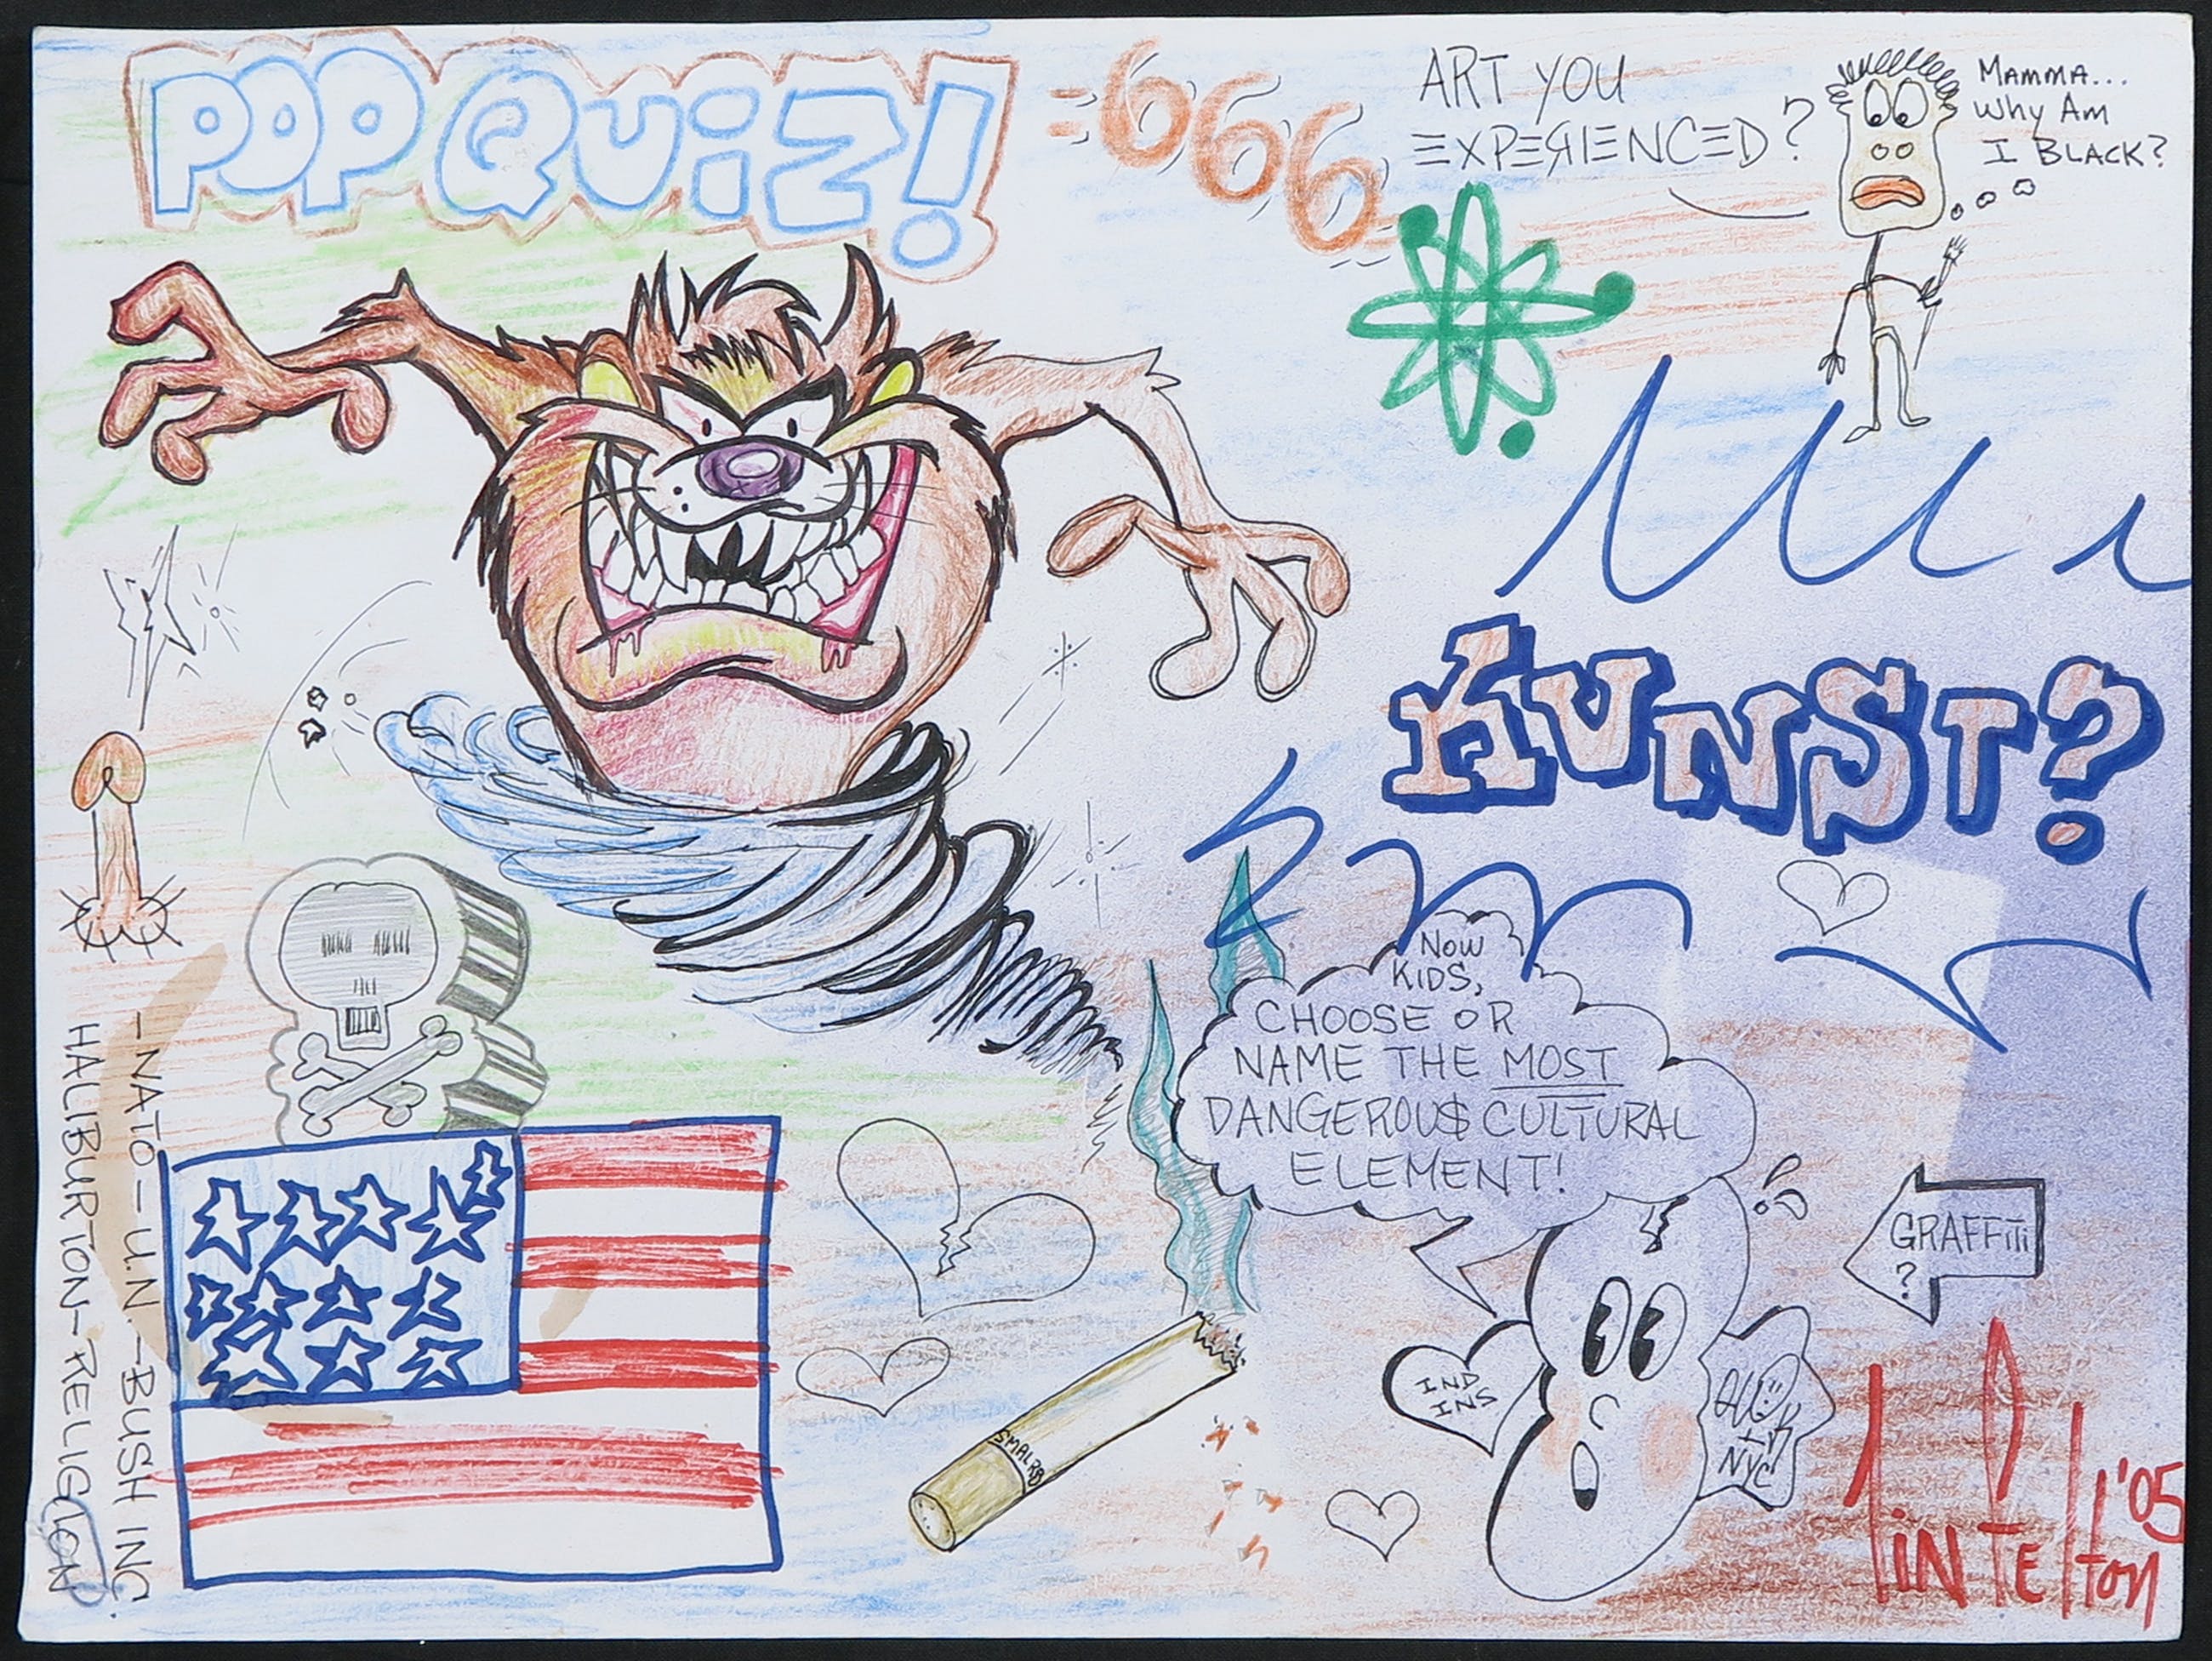 POP QUIZ!
=666
ART YOU
EXPERIENCED?
MAMMA...
Why Am
I BLACK?
KUNST?
NOW
KIDS,
CHOOSE OR
NAME THE MOST
DANGEROU$ CULTURAL
ELEMENT!
GRAFFITI
?
IND
INS
+
NYC
SMALRB
-NATO-U.N.-BUSH INC
HALIBURTON-RELIGION
TINTElton '05